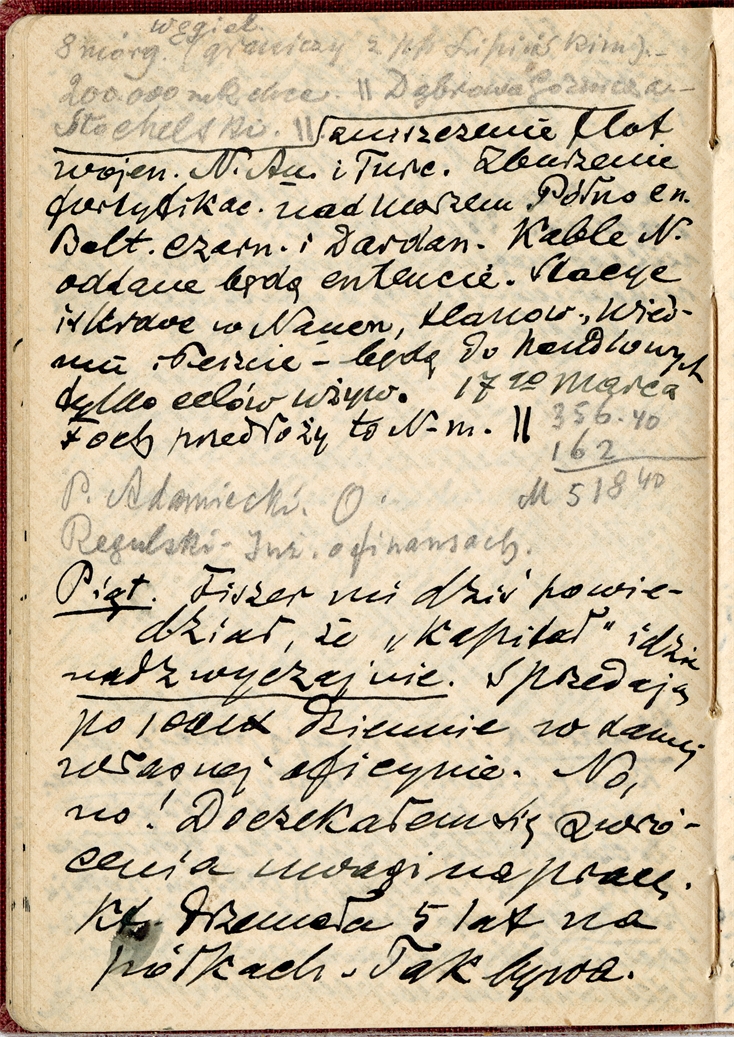 węgiel
8 mórg. (graniczy z pp Lipińskim).–
200.000 mk chce. || Dąbrowa Górnicza–
Stochelski. || Zniszczenie flot
wojen. N. Au. i Turc. Zburzenie
fortyfikac. nad morzem Półno en.
Balt. czarn. i Dardan. Kable N.
oddane będą entencie. Stacye
iskrowe w Nauen, Hanow., Wied-
niu i Peszcie – będą do handlowych
tylko celów używ. 17go marca
Foch przedłoży to N-m. ||
356.40
162
M 518 40
P. Adamiecki. O.
Regulski – Inż. o finansach.
Piąt. Fiszer mi dziś powie-
dział, że „Kapitał" idzie
nadzwyczajnie. Sprzedają
po dziennie w samej
własnej oficynie. No,
no! Doczekałem się zwró-
cenia uwagi na pracę,
kt. drzemała 5 lat na
półkach. Tak bywa.